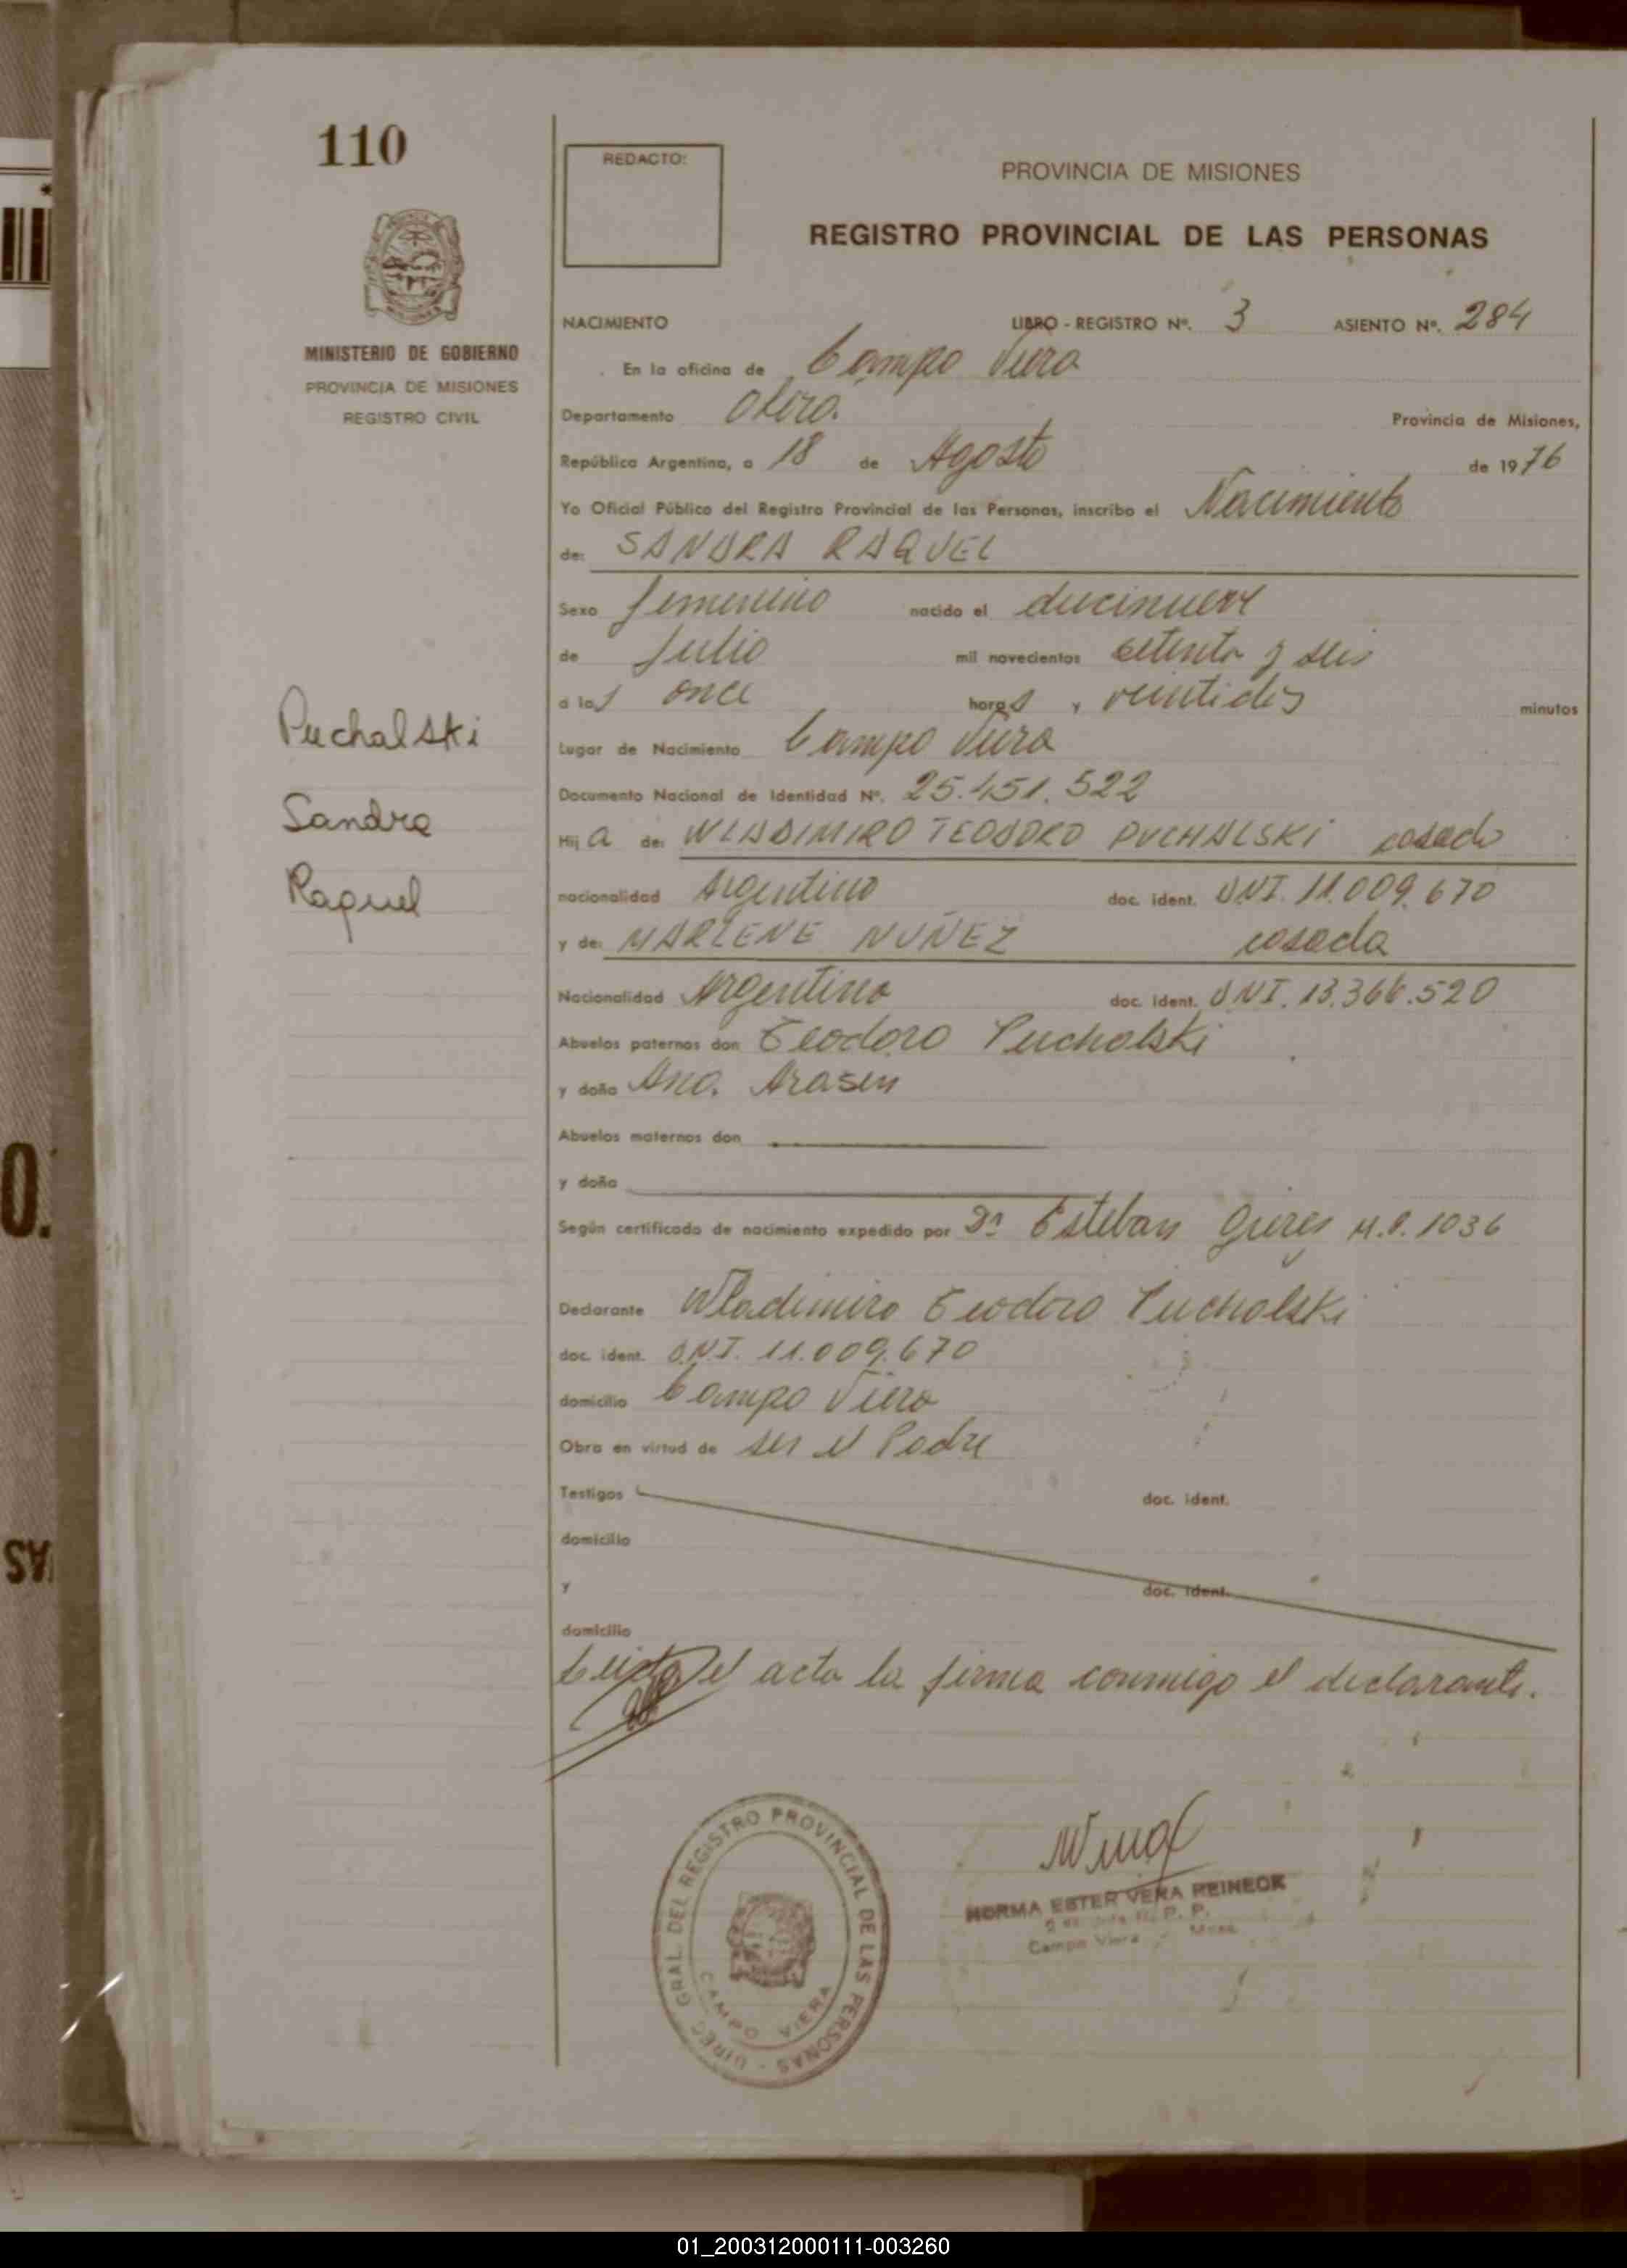 110
MINISTERIO DE GOBIERNO
PROVINCIA DE MISIONES
REGISTRO CIVIL
Puchalski
Sandra
Raquel
REDACTO:
PROVINCIA DE MISIONES
REGISTRO PROVINCIAL DE LAS PERSONAS
NACIMIENTO LIBRO - REGISTRO Nº. 3 ASIENTO Nº. 284
En la oficina de Campo Viera
Departamento Oberá. Provincia de Misiones,
República Argentina, a 18 de Agosto de 1976
Yo Oficial Público del Registro Provincial de las Personas, inscribo el Nacimiento
de: SANDRA RAQUEL
Sexo femenino nacido el diecinueve
de Julio mil novecientos setenta y seis
a las once horas y veintidos minutos
Lugar de Nacimiento Campo Viera
Documento Nacional de Identidad Nº. 25.451.522
Hija de: WLADIMIRO TEODORO PUCHALSKI casado
nacionalidad Argentino doc. ident. DNI. 11.009.670
y de: MARLENE NUÑEZ casada
Nacionalidad Argentina doc. ident. DNI. 13.366.520
Abuelos paternos don Teodoro Puchalski
y doña Ana. Arasen
Abuelos maternos don
y doña
Según certificado de nacimiento expedido por Dr Esteban M.P. 1036
Declarante Wladimiro Teodoro Puchalski
doc. ident. D.N.I. 11.009.670
domicilio Campo Viera
Obra en virtud de ser el Padre
Testigos doc. ident.
domicilio
y doc. ident.
domicilio
Leida el acta la firma conmigo el declarante.
DIREC. GRAL. DEL REGISTRO PROVINCIAL DE LAS PERSONAS -
CAMPO VIERA
NORMA ESTER VERA REINECK
R. P. P.
Campo Viera - Mnes.
O.
AS
01_200312000111-003260